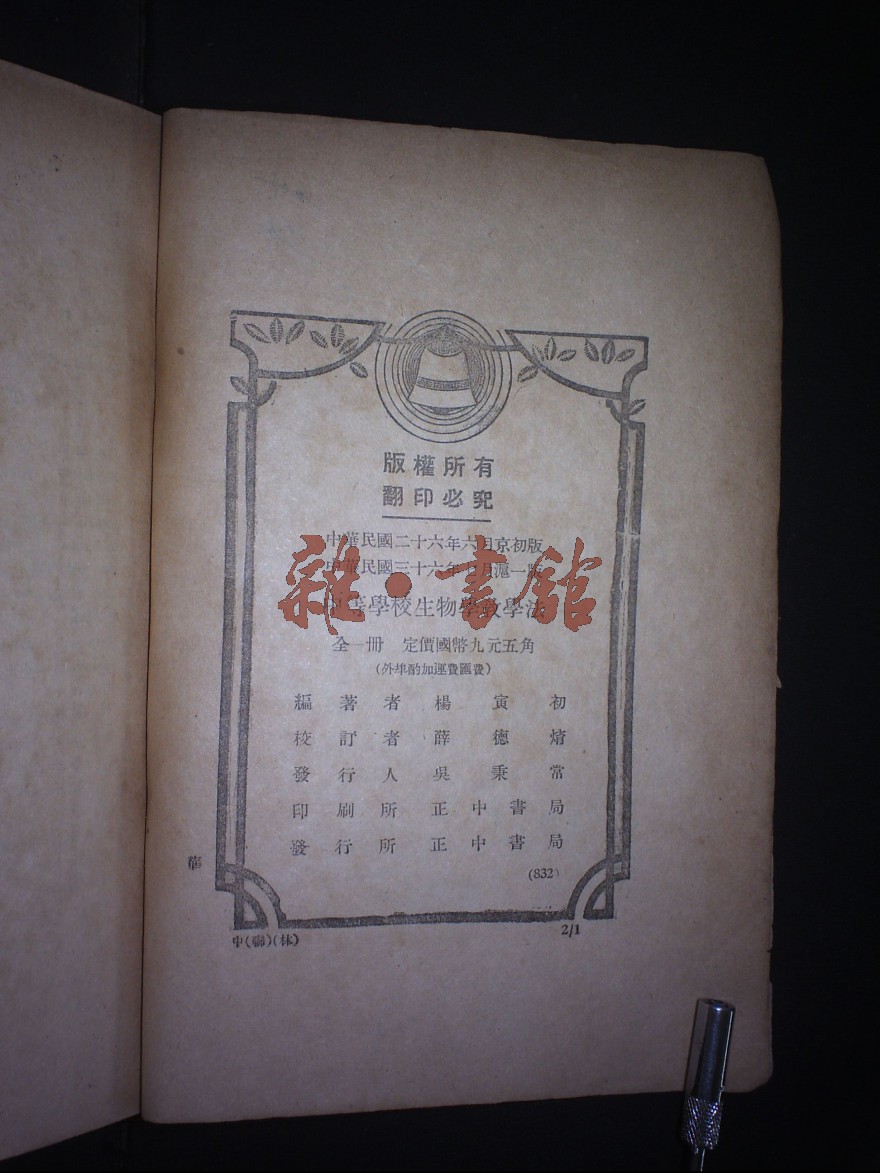 版權所有
翻印必究
中華民國二十六年六月京初版
中華民國三十六年 月滬一版
中等學校生物學教學法
全一冊 定價國幣九元五角
(外埠酌加運費匯費)
編著者 楊寅初
校訂者 薛德焴
發行人 吳秉常
印刷所 正中書局
發行所 正中書局
(832)
中(聯)(林)
2/1
雜·書館